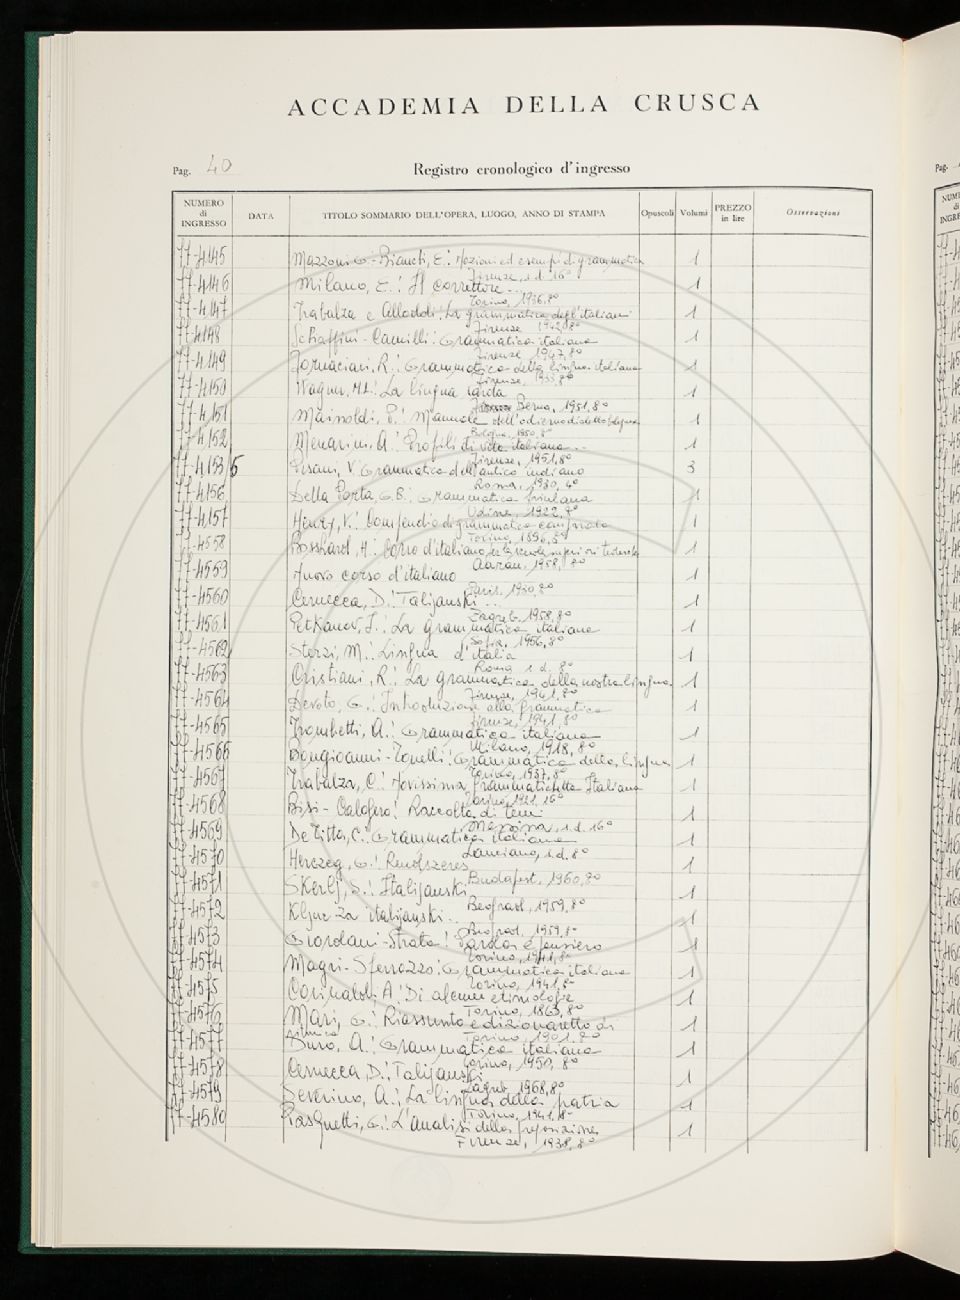 ACCADEMIA DELLA CRUSCA
Pag. 40
Registro cronologico d'ingresso
Pag.
NUMERO di INGRESSO DATA TITOLO SOMMARIO DELL'OPERA, LUOGO, ANNO DI STAMPA Opuscoli Volumi PREZZO in lire Osservazioni
77-4145 Mazzoni G. - Bianchi, E.: Nozioni ed esempi di grammatica 1
Firenze, s.d. 16°
77-4146 Milano, E.: Il correttore... 1
Torino, 1936, 8°
77-4147 Trabalza e Allodoli: La grammatica degl'italiani 1
Firenze 1942, 8°
77-4148 Schiaffini - Camilli: Grammatica italiana 1
Firenze, 1947, 8°
77-4149 Fornaciari, R.: Grammatica della lingua italiana 1
Firenze, 1935, 8°
77-4150 Wagner, M.L.: La lingua sarda 1
Berna, 1951, 8°
77-4151 Mainoldi, P.: Manuale dell'odierno dialetto bologn. 1
Bologna, 1950, 8°
77-4152 Menarini, A.: Profili di vita italiana... 1
Firenze, 1951, 8°
77-4153/5 Pisani, V. Grammatica dell'antico indiano 3
Roma, 1930, 4°
77-4156 Della Porta, G.B.: Grammatica friulana 1
Udine, 1922, 8°
77-4157 Henry, V.: Compendio di grammatica comparata 1
Torino, 1896, 8°
77-4558 Bosshard, H.: Corso d'italiano per le scuole superiori tedesche 1
Aarau, 1958, 8°
77-4559 Nuovo corso d'italiano 1
Paris, 1930, 8°
77-4560 Cernecca, D.: Talijanski... 1
Zagreb, 1958, 8°
77-4561 Petkanov, I.: La grammatica italiana 1
Sofia, 1956, 8°
77-4562 Sterzi, M.: Lingua d'Italia 1
Roma s.d. 8°
77-4563 Cristiani, R.: La grammatica della nostra lingua 1
Firenze, 1941, 8°
77-4564 Devoto, G.: Introduzione alla grammatica 1
Firenze, 1941, 8°
77-4565 Trombetti, A.: Grammatica italiana 1
Milano, 1918, 8°
77-4566 Bongioanni - Tonelli: Grammatica della lingua 1
Torino, 1937, 8°
77-4567 Trabalza, C.: Novissima grammatichetta Italiana 1
Torino, 1921, 16°
77-4568 Bisi - Calogero: Raccolta di temi 1
Messina, s.d. 16°
77-4569 De Titta, C.: Grammatica italiana 1
Lanciano, s.d. 8°
77-4570 Herczeg, G.: Rendszeres 1
Budapest, 1960, 8°
77-4571 Skerlj, S.: Italijanski 1
Beograd, 1959, 8°
77-4572 Kljuc za italijanski... 1
Beograd, 1959, 8°
77-4573 Giordani - Strata: Parola e pensiero 1
Torino, 1941, 8°
77-4574 Magri - Sferrazzo: Grammatica italiana 1
Torino, 1941, 8°
77-4575 Garibaldi A: Di alcune etimologie 1
Torino, 1863, 8°
77-4576 Masi, G.: Riassunto e dizionaretto di 1
Torino, 1901, 8°
77-4577 Duro, A.: Grammatica italiana 1
Torino, 1950, 8°
77-4578 Cernecca, D.: Talijanski 1
Zagreb, 1968, 8°
77-4579 Severino, A.: La lingua della patria 1
Torino, 1941, 8°
77-4580 Pasquetti, G.: L'analisi della proposizione 1
Firenze, 1938, 8°